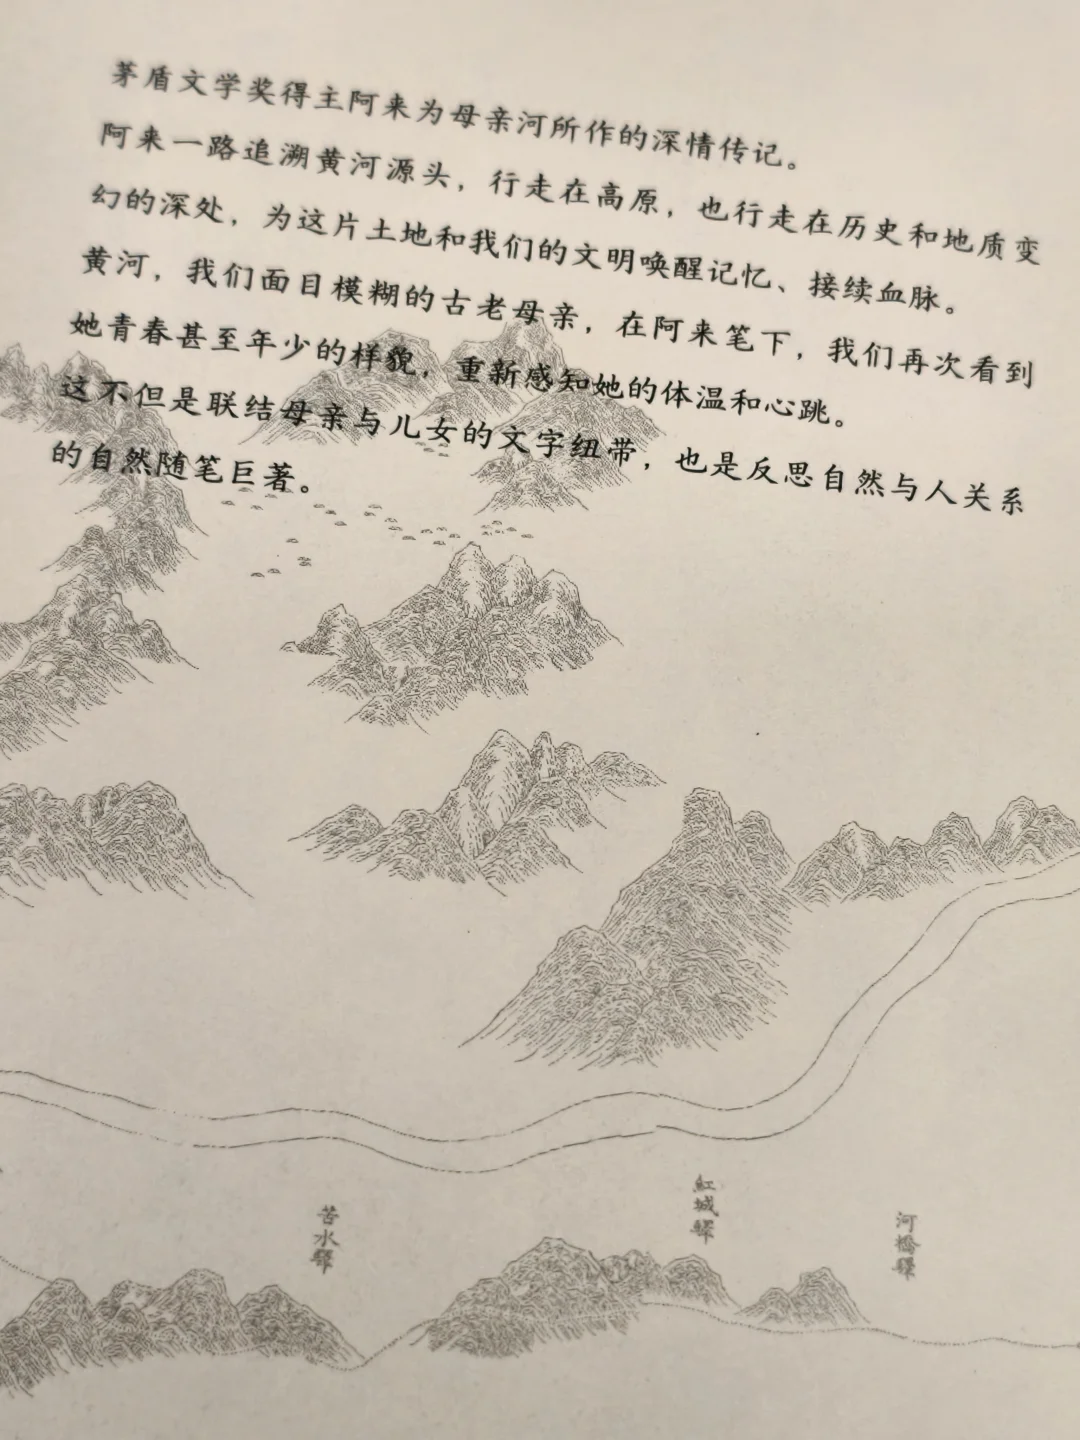 茅盾文学奖得主阿来为母亲河所作的深情传记。
阿来一路追溯黄河源头，行走在高原，也行走在历史和地质变
幻的深处，为这片土地和我们的文明唤醒记忆、接续血脉。
黄河，我们面目模糊的古老母亲，在阿来笔下，我们再次看到
她青春甚至年少的样貌，重新感知她的体温和心跳。
这不但是联结母亲与儿女的文字纽带，也是反思自然与人关系
的自然随笔巨著。
苦水驛
紅城驛
河橋驛